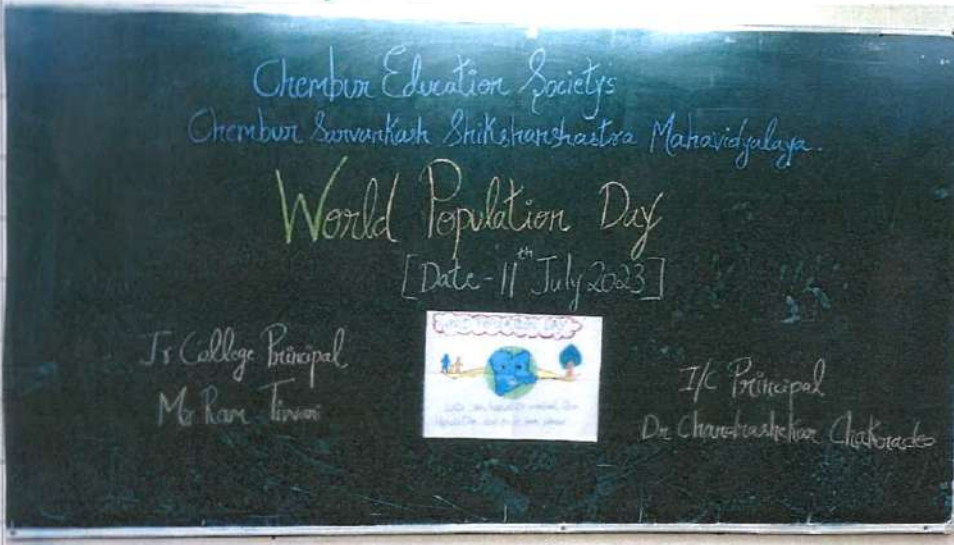 Chembur Education Society's
Chembur Sarvankash Shikshanshastra Mahavidyalaya.
World Population Day
[Date - 11th July 2023]
Jr College Principal
Mr Ram Tiwari
WORLD POPULATION DAY
I/C Principal
Dr Chandrashekhar Chakradeo